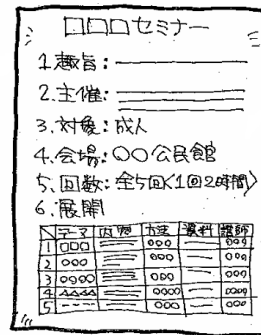 □□□セミナー
1.趣旨:
2.主催:
3.対象:成人
4.会場:○○公民館
5.回数:全5回(1回2時間)
6.展開
テーマ 内容 方法 資料 講師
1 □□□ ○○○ ○○○
2 ○○○ ○○○ ○○○
3 ○○○○ ○○○ ○○○
4 △△△△ ○○○○ ○○○
5 ○○○ ○○○